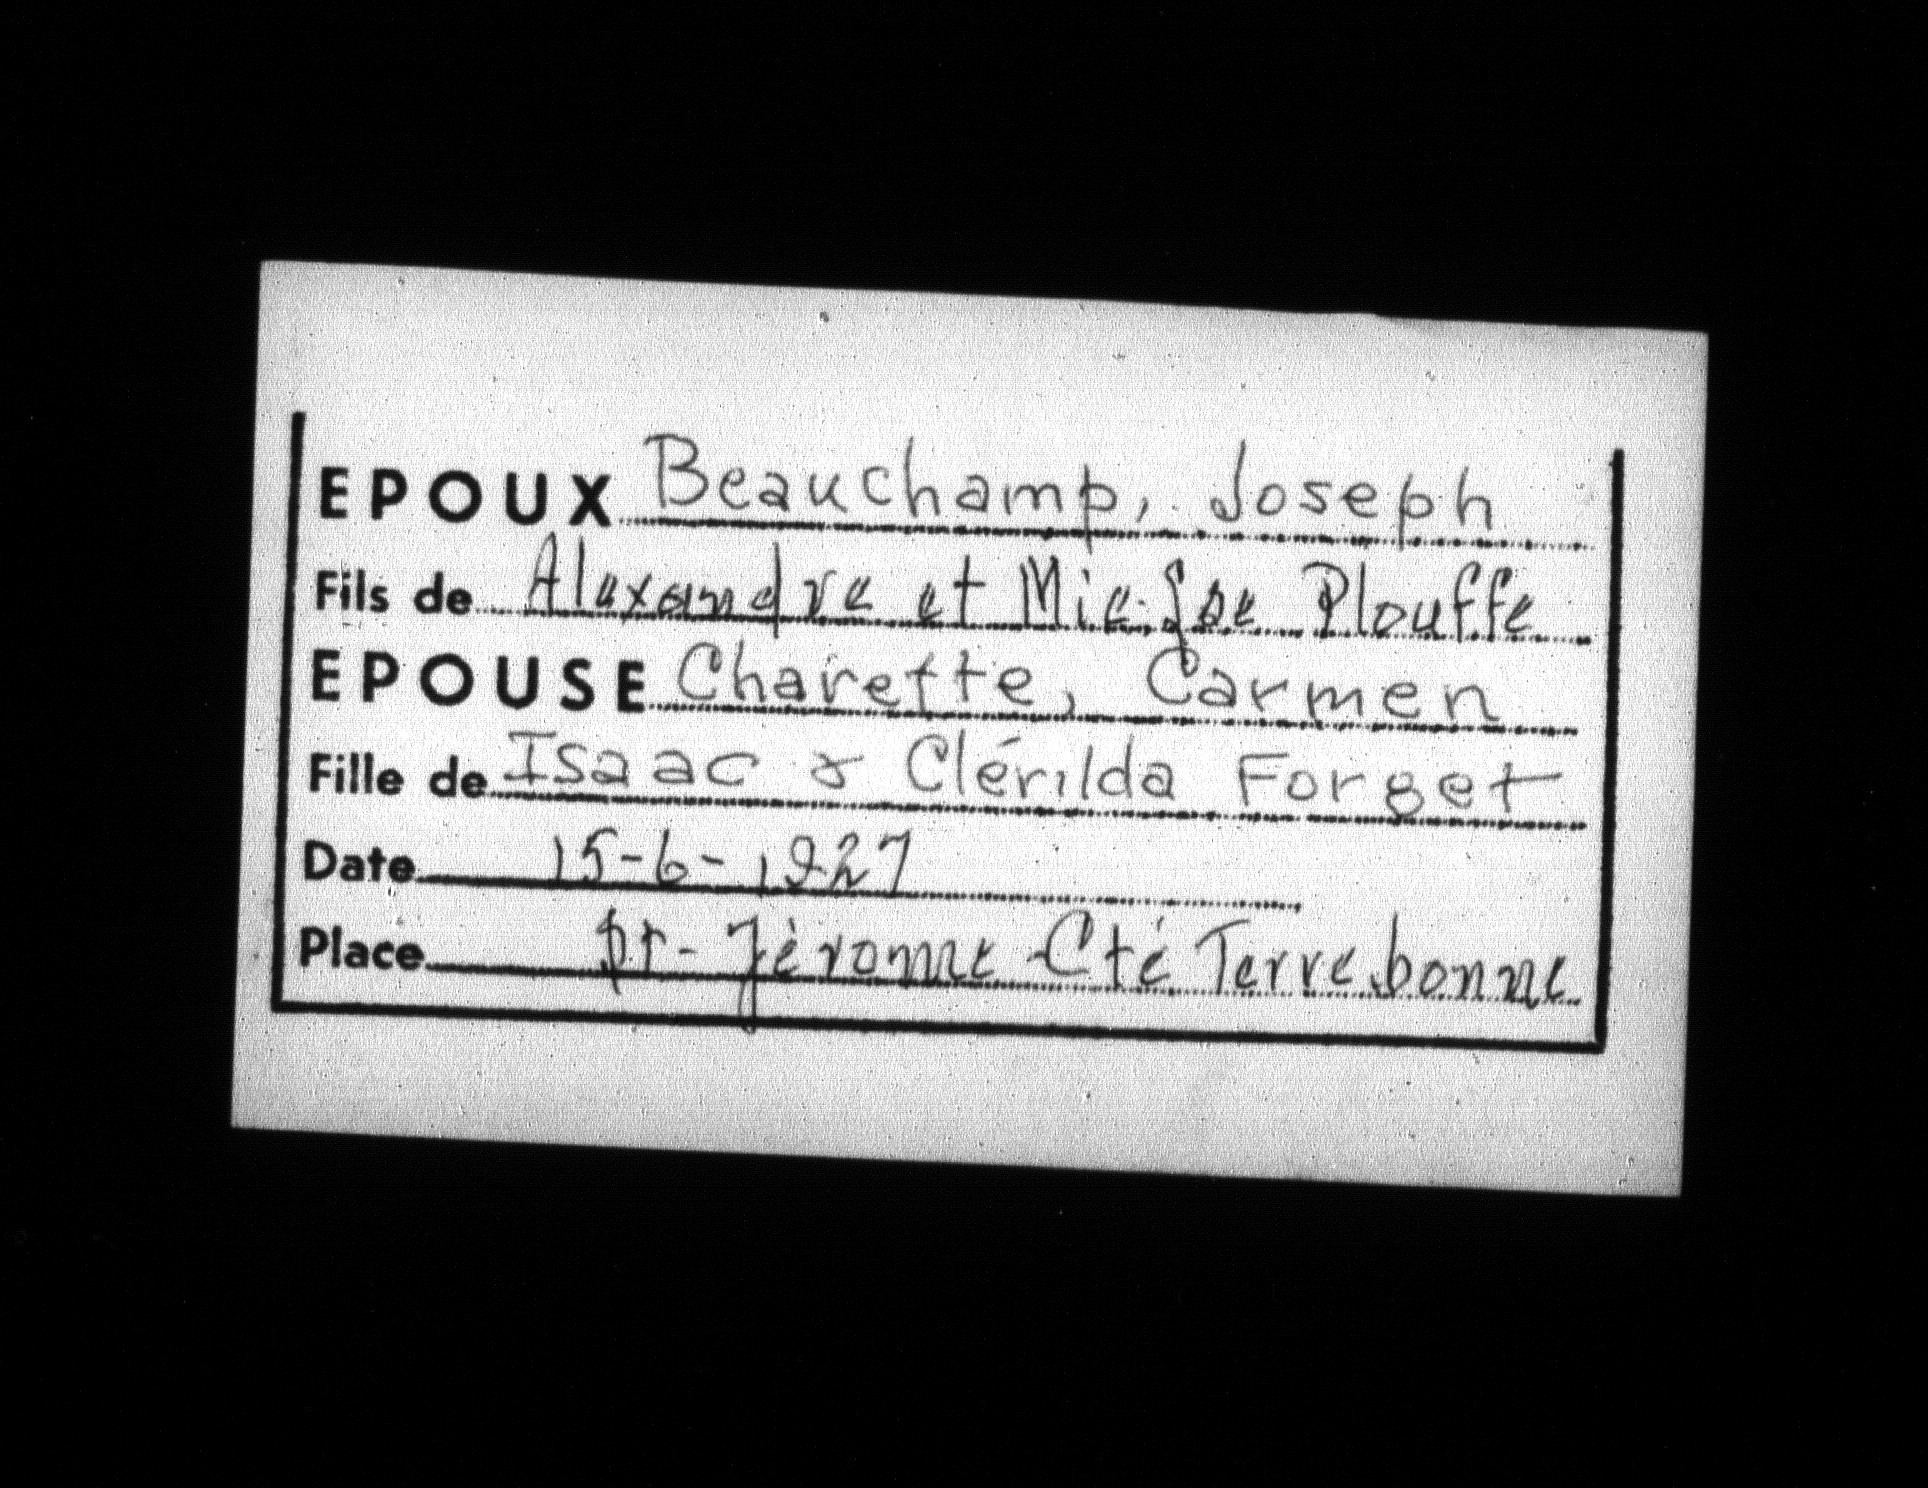 EPOUX Beauchamp, Joseph
Fils de Alexandre et Mie-Jse Plouffe
EPOUSE Charette, Carmen
Fille de Isaac & Clérilda Forget
Date 15-6-1927
Place St-Jérome Cté Terrebonne